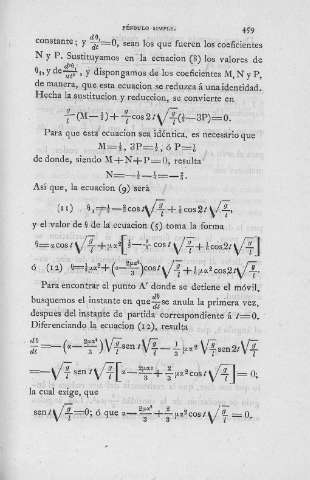 PÉNDULO SIMPLE. 459
constante; y dθ₁/dt=0, sean los que fueren los coeficientes
N y P. Sustituyamos en la ecuacion (8) los valores de
θ₁, y de d²θ₁/dt², y dispongamos de los coeficientes M, N y P,
de manera, que esta ecuacion se reduzca á una identidad.
Hecha la sustitucion y reduccion, se convierte en
g/l (M—½)+ g/l cos 2t √g/l (½—3P)=0.
Para que esta ecuacion sea idéntica, es necesario que
M=½, 3P=½, ó P=⅙
de donde, siendo M+N+P=0, resulta
N=—½—⅙=—⅔.
Asi que, la ecuacion (9) será
(11) θ₁=½—⅔cos t√g/l + ⅙ cos 2t √g/l,
y el valor de θ de la ecuacion (5) toma la forma
θ=α cos t √g/l + μα² [½—⅔ cos t √g/l + ⅙ cos 2t √g/l]
ó (12) θ=½μα²+(α—2μα²/3)cos t √g/l + ⅙ μα² cos 2t √g/l.
Para encontrar el punto A′ donde se detiene el móvil,
busquemos el instante en que dθ/dt se anula la primera vez,
despues del instante de partida correspondiente á t=0.
Diferenciando la ecuacion (12), resulta
dθ/dt =—(α—2μα²/3) √g/l sen t √g/l — 1/3 μα² √g/l sen 2t √g/l
=—√g/l sen t √g/l [α—2μα²/3 + 2/3 μα² cos t √g/l]= 0;
la cual exige, que
sen t √g/l=0; ó que α—2μα²/3 + 2/3 μα² cos t √g/l = 0.